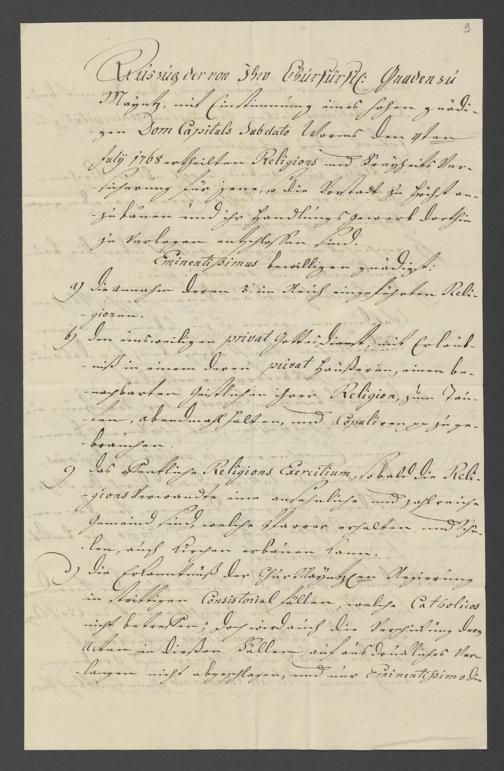 9
Auszug der von Ihro Churfürstl: Gnaden zu
Mayntz, mit Einstimmung eines hohen gnädi-
gen Dom Capituls sub dato Worms den 4ten
July 1768 ertheilten Religions und Freyheits Ver-
sicherung für jene, die Vorstadt zu Höchst an-
zubauen und ihr Handlungs gewerb dorthin
zu verlegen entschlossen sind.
Eminentissimus bewilligen gnädigst:
a) die annahm deren 3 im Reich eingeführten Reli-
gionen.
b) den einsweiligen privat Gottesdienst, mit Erlaub-
niß in einem deren privat Haüßeren, einen be-
nachbarten Geistlichen ihrer Religion, zum Tau-
fen, abendmahl halten, und Copuliren pp zu ge-
brauchen.
c) das öffentliche Religions Exercitium, sobald die Reli-
gions Verwandte eine ansehnliche und zahlreiche
Gemeind sind, welche Pfarrer erhalten und Schu-
len, auch Kirchen erbauen kann.
d) die Erkanntnuß der ChurMayntzen Regierung
in strittigen Consistorial fällen, welche Catholicos
nicht betreffen; doch wird auch die Verschickung deren
Acten in dießen Fällen, auf ausdrückliches Ver-
langen nicht abgeschlagen, und nur Eminentissimo die